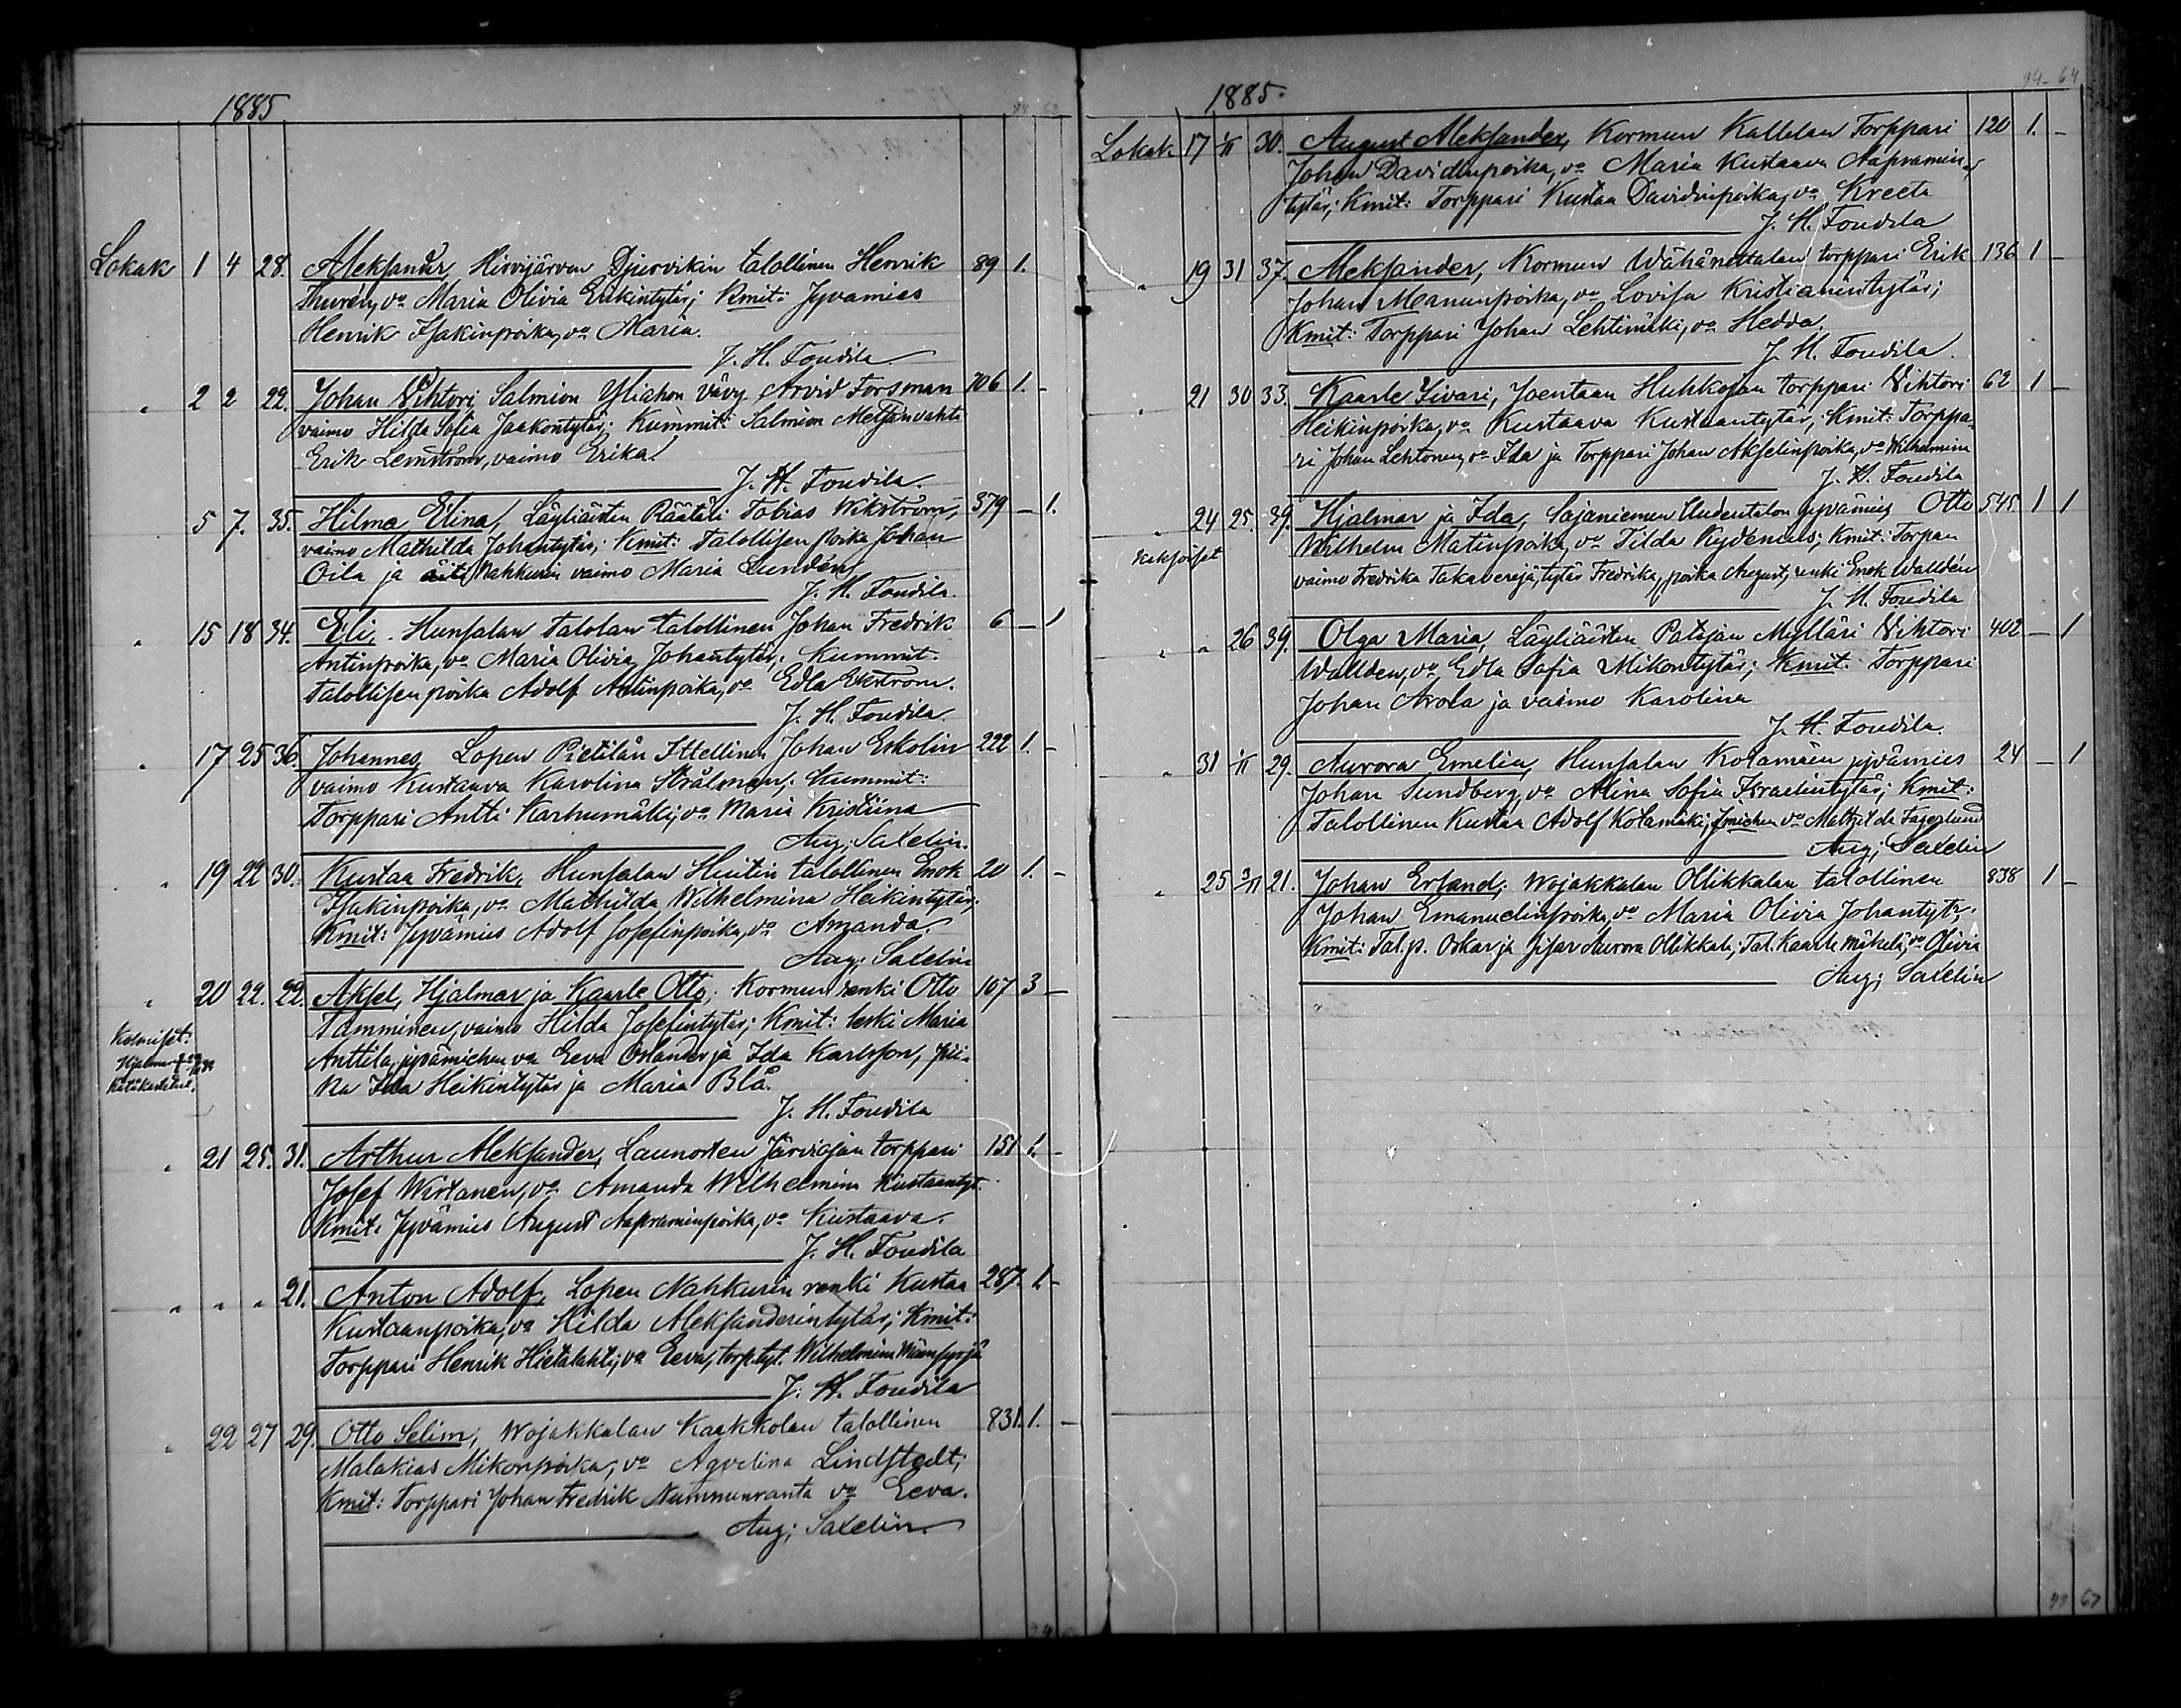 1885
Lokak 1 4 28. Aleksander, Hirvijärven Djurvikin talollinen Henrik 89 1.
Thurén, vo Maria Olivia Erikintytär; Kmit: Jyvämies
Henrik Isakinpoika, vo Maria.
J. H. Toudila
" 2 2 22. Johan Vihtori, Salmion Yliahon vävy Arvid Forsman 706 1. -
vaimo Hilda Sofia Jaakontytär; Kummit: Salmion Metsänvahti
Erik Lemström, vaimo Erika.
J. H. Toudila.
5 7. 35. Hilma Elina, Läyliäisten Räätäli Tobias Wikström, 379 - 1.
vaimo Mathilda Johantytär; Kmit: Talollisen poika Johan
Oila ja äiti, Nahkurin vaimo Maria Lundén
J. H. Toudila.
" 15 18 34. Eli, Hunsalan Talolan talollinen Johan Fredrik 6 - 1
Antinpoika, vo Maria Olivia Johantytär; Kummit:
Talollisen poika Adolf Antinpoika, vo Edla Ekström.
J. H. Toudila.
" 17 25 36. Johannes, Lopen Pietilän Ittellinen Johan Eskolin 222 1. -
vaimo Kustaava Karolina Strålman; Kummit:
Torppari Antti Karhumäki, vo Maria Kristiina
Aug. Saxelin.
" 19 22 30. Kustaa Fredrik, Hunsalan Huitin talollinen Enok 20 1. -
Isakinpoika, vo Mathilda Wilhelmina Heikintytär;
Kmit: Jyvämies Adolf Josefinpoika, vo Amanda.
Aug. Saxelin
" 20 22. 22. Aksel, Hjalmar ja Kaarle Otto, Kormun renki Otto 107 3 -
Kolmiset. Tamminen, vaimo Hilda Josefintytär; Kmit: leski Maria
Hjalmar Anttila, jyvämiehen vo Eeva Oslander ja Ida Karlsson, pii-
ka Ida Heikintytär ja Maria Blå.
J. H. Toudila
" 21 25. 31. Arthur Aleksander, Launosten Järviojan torppari 151 1. -
Josef Wirtanen, vo Amanda Wilhelmina Kustaantyt.
Kmit: Jyvämies August Aapraminpoika, vo Kustaava.
J. H. Toudila
" " " 21. Anton Adolf, Lopen Nahkurin renki Kustaa 287. 1. -
Kustaanpoika, vo Hilda Aleksanderintytär; Kmit:
Torppari Henrik Hietalahti, vo Eeva, torp.tyt. Wilhelmina
J. H. Toudila
" 22 27 29. Otto Selim, Wojakkalan Kaakkolan talollinen 831. 1. -
Malakias Mikonpoika, vo Agvelina Lindstedt;
Kmit: Torppari Johan Fredrik Nummenranta vo Eeva.
Aug. Saxelin.
1885.
94 - 64
Lokak 17 1/11 30. August Aleksander, Kormun Kallelan Torppari 120 1. -
Johan Davidinpoika, vo Maria Kustaava Aapramin-
tytär; Kmit: Torppari Kustaa Davidinpoika, vo Kreeta
J. H. Toudila
" 19 31 37. Aleksander, Kormun Wähänettalan torppari Erik 136 1 -
Johan Manunpoika, vo Lovisa Kristianintytär;
Kmit: Torppari Johan Lehtimäki, vo Hedda.
J. H. Toudila.
" 21 30 33. Kaarle Iivari, Joentaan Huhkojan torppari Vihtori 62 1 -
Heikinpoika, vo Kustaava Kustaantytär, Kmit: Torppa-
ri Johan Lehtonen, vo Ida ja Torppari Johan Akselinpoika, vo Wilhelmina
J. H. Toudila
" 24 25. 39. Hjalmar ja Ida, Sajaniemen Uudentalon jyvämies Otto 545 1 1
Kaksoiset Wilhelm Matinpoika, vo Tilda Rydenius; Kmit: Torpan
vaimo Fredrika Takaveräjä, tytär Fredrika, poika August, renki Enok Walldén
J. H. Toudila
" " 26 39. Olga Maria, Läyliäisten Patojan Mylläri Vihtori 402 - 1
Wallden, vo Edla Sofia Mikontytär; Kmit: Torppari
Johan Arola ja vaimo Karolina
J. H. Toudila.
" 31 1/11 29. Aurora Emelia, Hunsalan Kotamäen jyvämies 24 - 1
Johan Sundberg, vo Alina Sofia Israelintytär; Kmit:
Talollinen Kustaa Adolf Kotamäki, Jmiehen vo Matilda Fagerlund
Aug. Saxelin
" 25 2/11 21. Johan Erland, Wojakkalan Ollikkalan talollinen 838 1 -
Johan Emanuelinpoika, vo Maria Olivia Johantyt.;
Kmit: Tal. p. Oskar ja sisar Aurora Ollikkala, Tal. Kaarle Mäkelä, vo Olivia
Aug. Saxelin
99 67